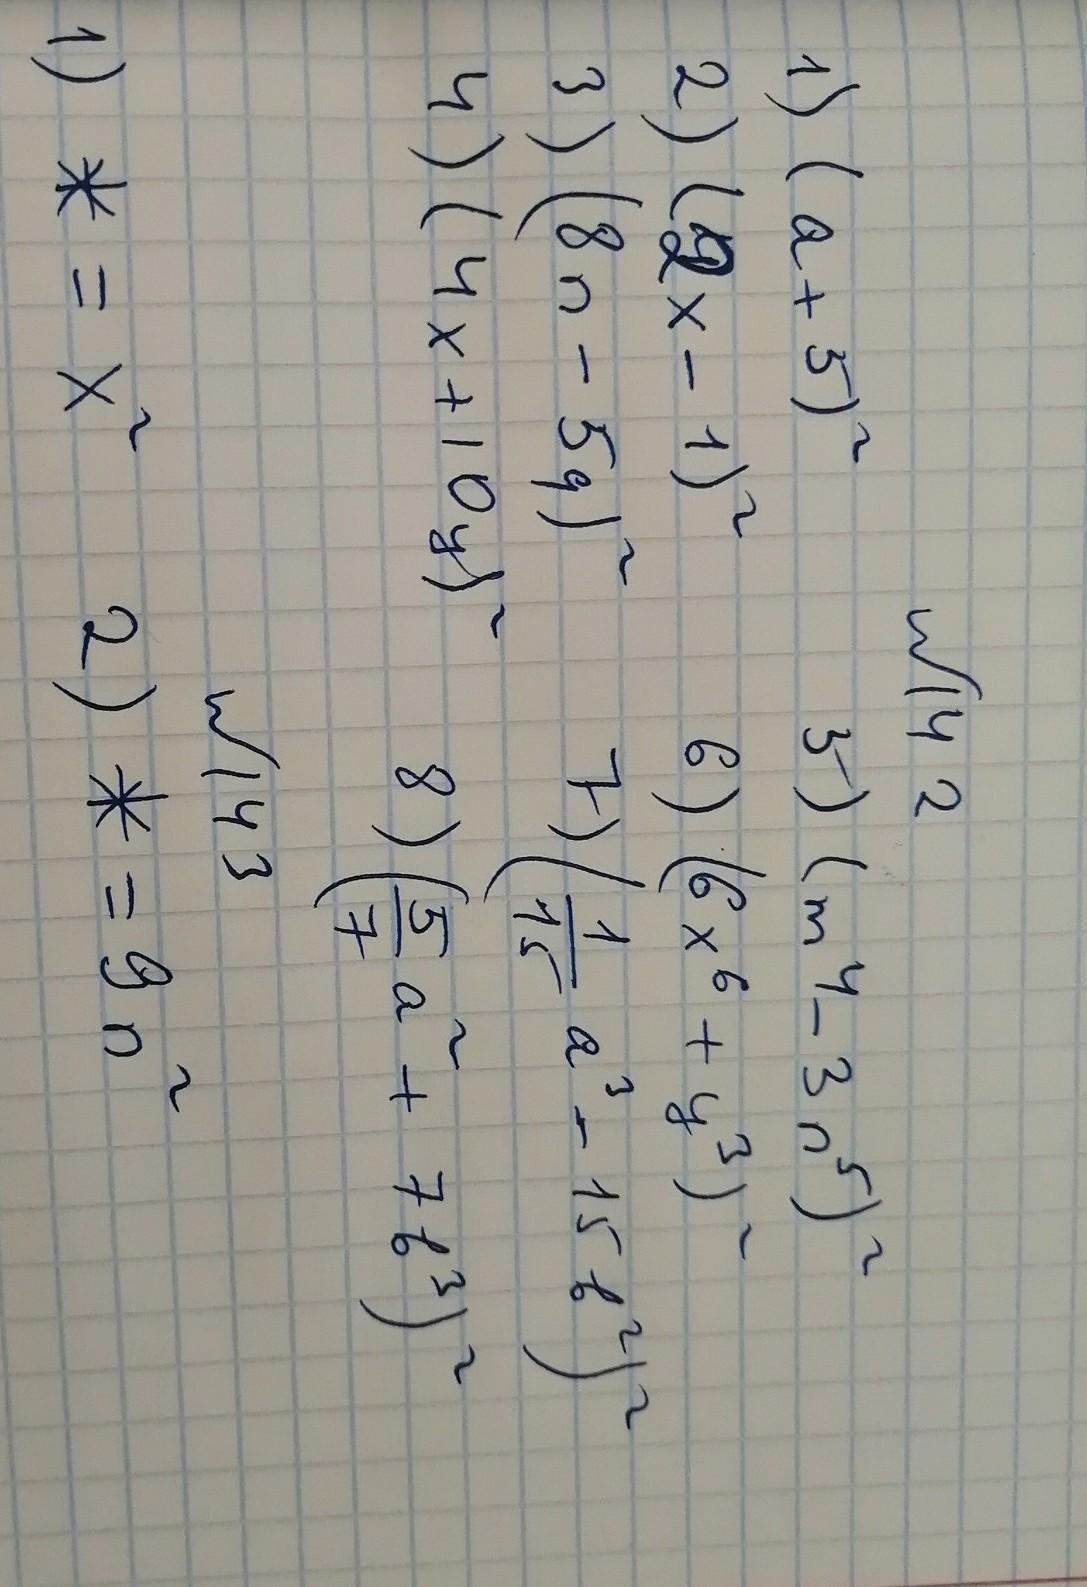 №142
1) (a+5)²
2) (2x-1)²
3) (8n-5q)²
4) (4x+10y)²
5) (m⁴-3n⁵)²
6) (6x⁶+y³)²
7) (1/15 a³-15b²)²
8) (5/7 a²+7b³)²
№143
1) * = x² 2) * = 9n²